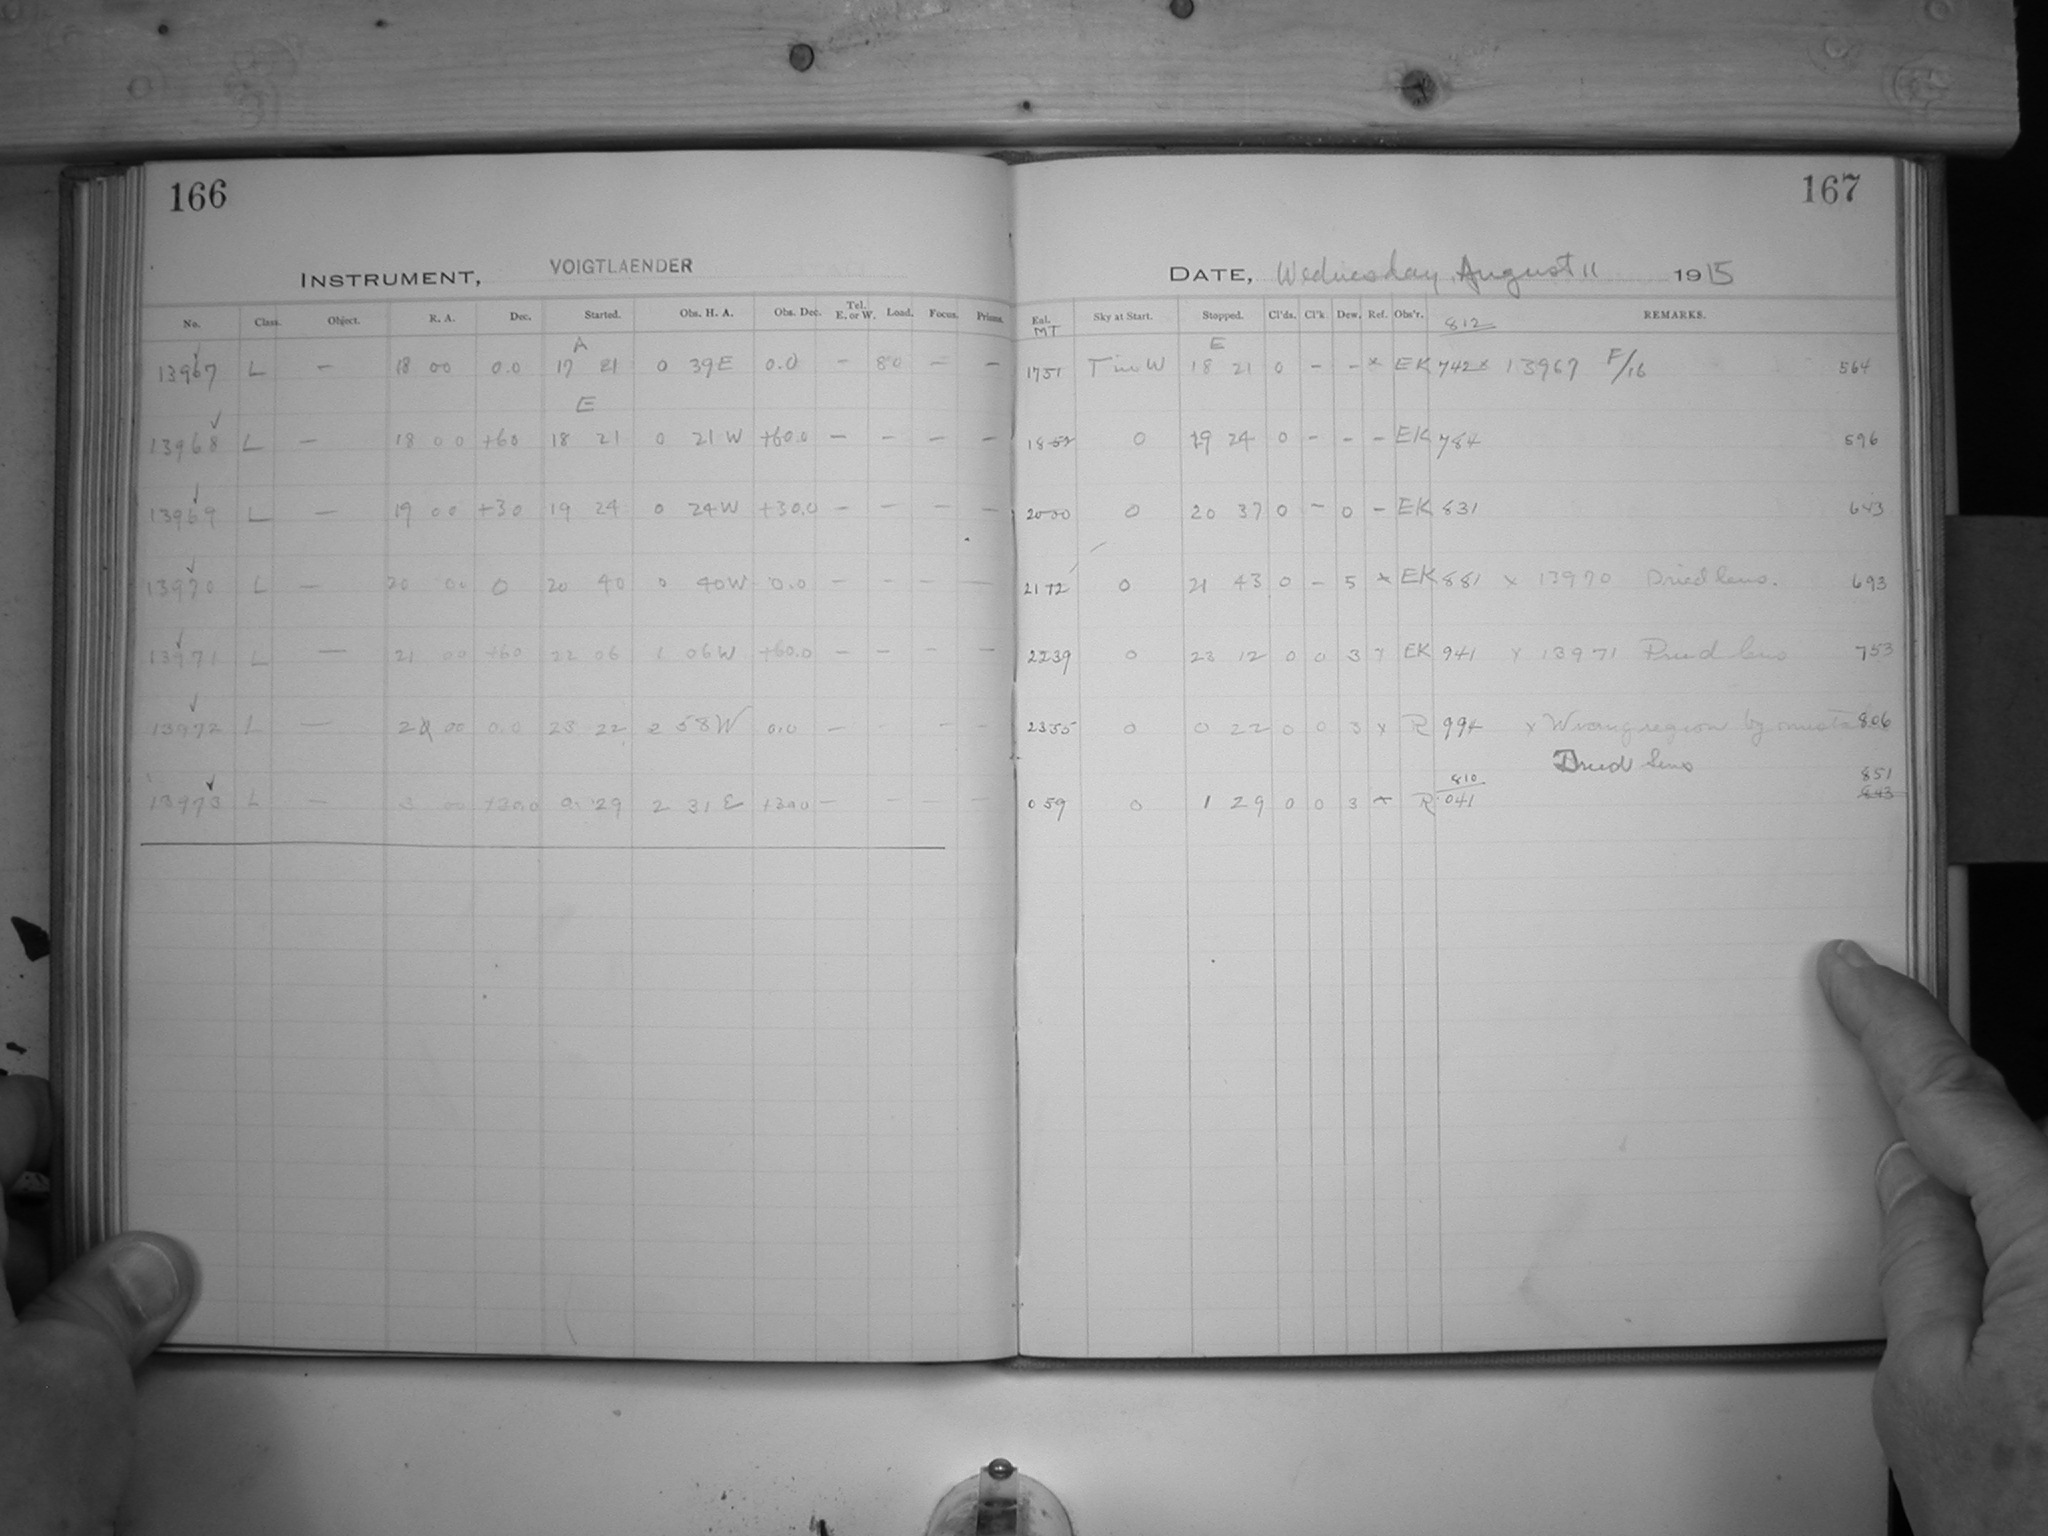 166
167
INSTRUMENT, VOIGTLAENDER
DATE, Wednesday August 11 1915
No. Class. Object. R. A. Dec. Started. Obs. H. A. Obs. Dec. Tel. E. or W. Load. Focus. Prisms. Eal. MT Sky at Start. Stopped. Cl'ds. Cl'k. Dew. Ref. Obs'r. 812 REMARKS.
A E
13967 L — 18 00 0.0 17 21 0 39E 0.0 - 80 — — 1751 18 21 0 - - x EK 742 x 13967 F/16 564
E
13968 L — 18 00 +60 18 21 0 21W +60.0 — - - — 1852 0 19 24 0 - - - EK 784 596
13969 L — 19 00 +30 19 24 0 24W +30.0 - - - - 2000 0 20 37 0 - 0 - EK 831 643
13970 L — 20 00 0 20 40 0 40W 0.0 - - - — 2112 0 21 43 0 - 5 x EK 881 x 13970 Dried lens. 693
13971 L — 21 00 +60 22 06 1 06W +60.0 - - - - 2239 0 23 12 0 0 3 x EK 941 x 13971 Dried lens 753
13972 L — 00 0.0 23 22 2 58W 0.0 — - - - 2355 0 0 22 0 0 3 x R 994 x Wrong region by 806
Dried lens
810 851
13973 L — 3 00 +30.0 0 29 2 31E +30.0 - - - - 059 0 1 29 0 0 3 x R 041 843